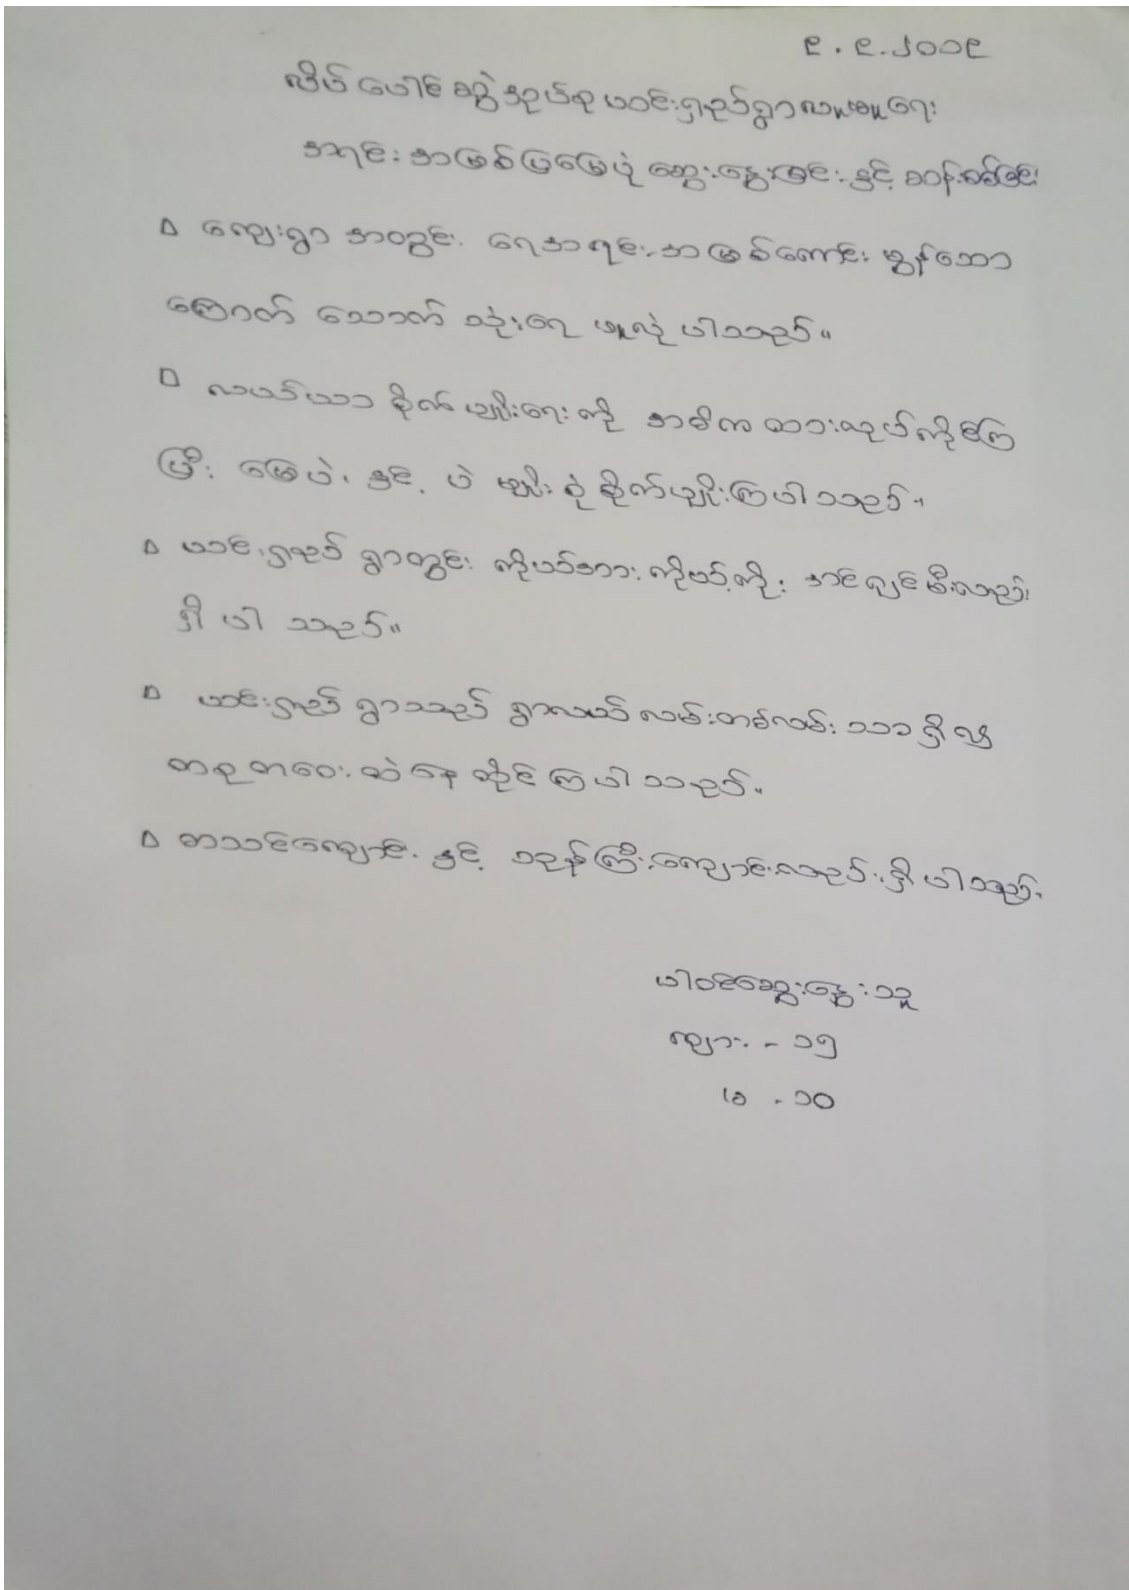 ၉.၉.၂၀၁၉
လိပ်ပေါင်ဆွဲအုပ်စုယင်းရှည်ရွာလူမှုရေး
အရင်းအမြစ်ပြမြေပုံ ဆွေးနွေးခြင်း နှင့် ဆန်းစစ်ခြင်း
ကျေးရွာ အတွင်း ရေအရင်းအမြစ်ကောင်း မွန်သော
ကြောက် သောက်သုံးရေ ဖူလုံ ပါသည်။
လယ်ယာ စိုက်ပျိုးရေး ကို အဓိက ထားလုပ်ကိုင်ကြ
ပြီး မြေပဲ၊ နှင့် ပဲ မျိုးစုံ စိုက်ပျိုးကြပါသည်။
ယင်းရှည် ရွာတွင်း ကိုယ်အား ကိုယ်ကို အင်ဂျင်မီးလည်း
ရှိ ပါ သည်။
ယင်းရှည် ရွာသည် ရွာလယ် လမ်းတစ်လမ်း သာ ရှိ၍
တစုတဝေး ထဲ နေ ထိုင် ကြ ပါ သည်။
စာသင်ကျောင်း နှင့် ဘုန်းကြီးကျောင်းလည်း ရှိ ပါ သည်။
ပါဝင်ဆွေးနွေးသူ
ကျား - ၁၅
မ - ၁၀